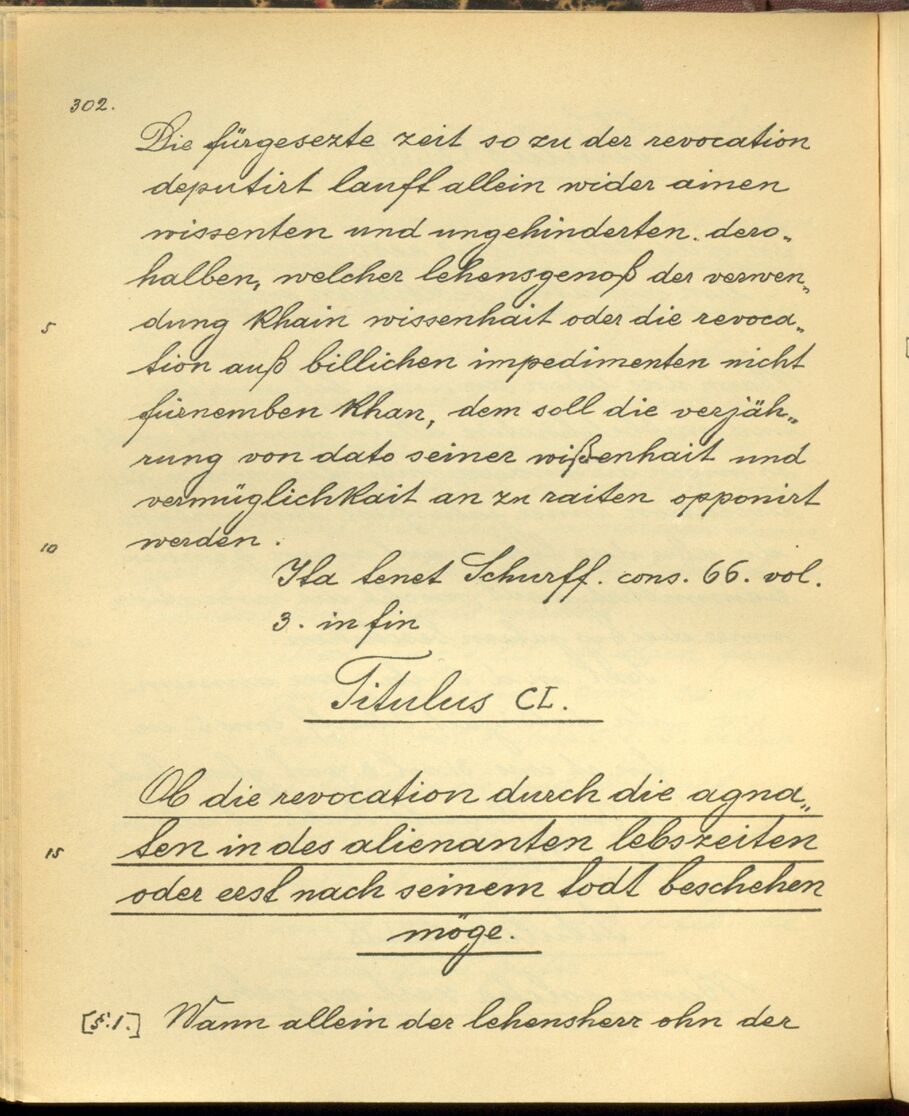 302.
Die fürgesezte zeit so zu der revocation
deputirt lauft allein wider ainen
wissenten und ungehinderten. dero„
halben, welcher lehensgenoß der verwen„
5 dung khain wissenhait oder die revoca„
tion auß billichen impedimenten nicht
fürnemben khan, dem soll die verjäh„
rung von dato seiner wißenhait und
vermüglichkait an zu raiten opponirt
10 werden.
Ita tenet Schurff. cons. 66. vol.
3. in fin
Titulus CL.
Ob die revocation durch die agna„
15 ten in des alienanten lebszeiten
oder erst nach seinem todt beschehen
möge.
[§.1.] Wann allein der lehensherr ohn der